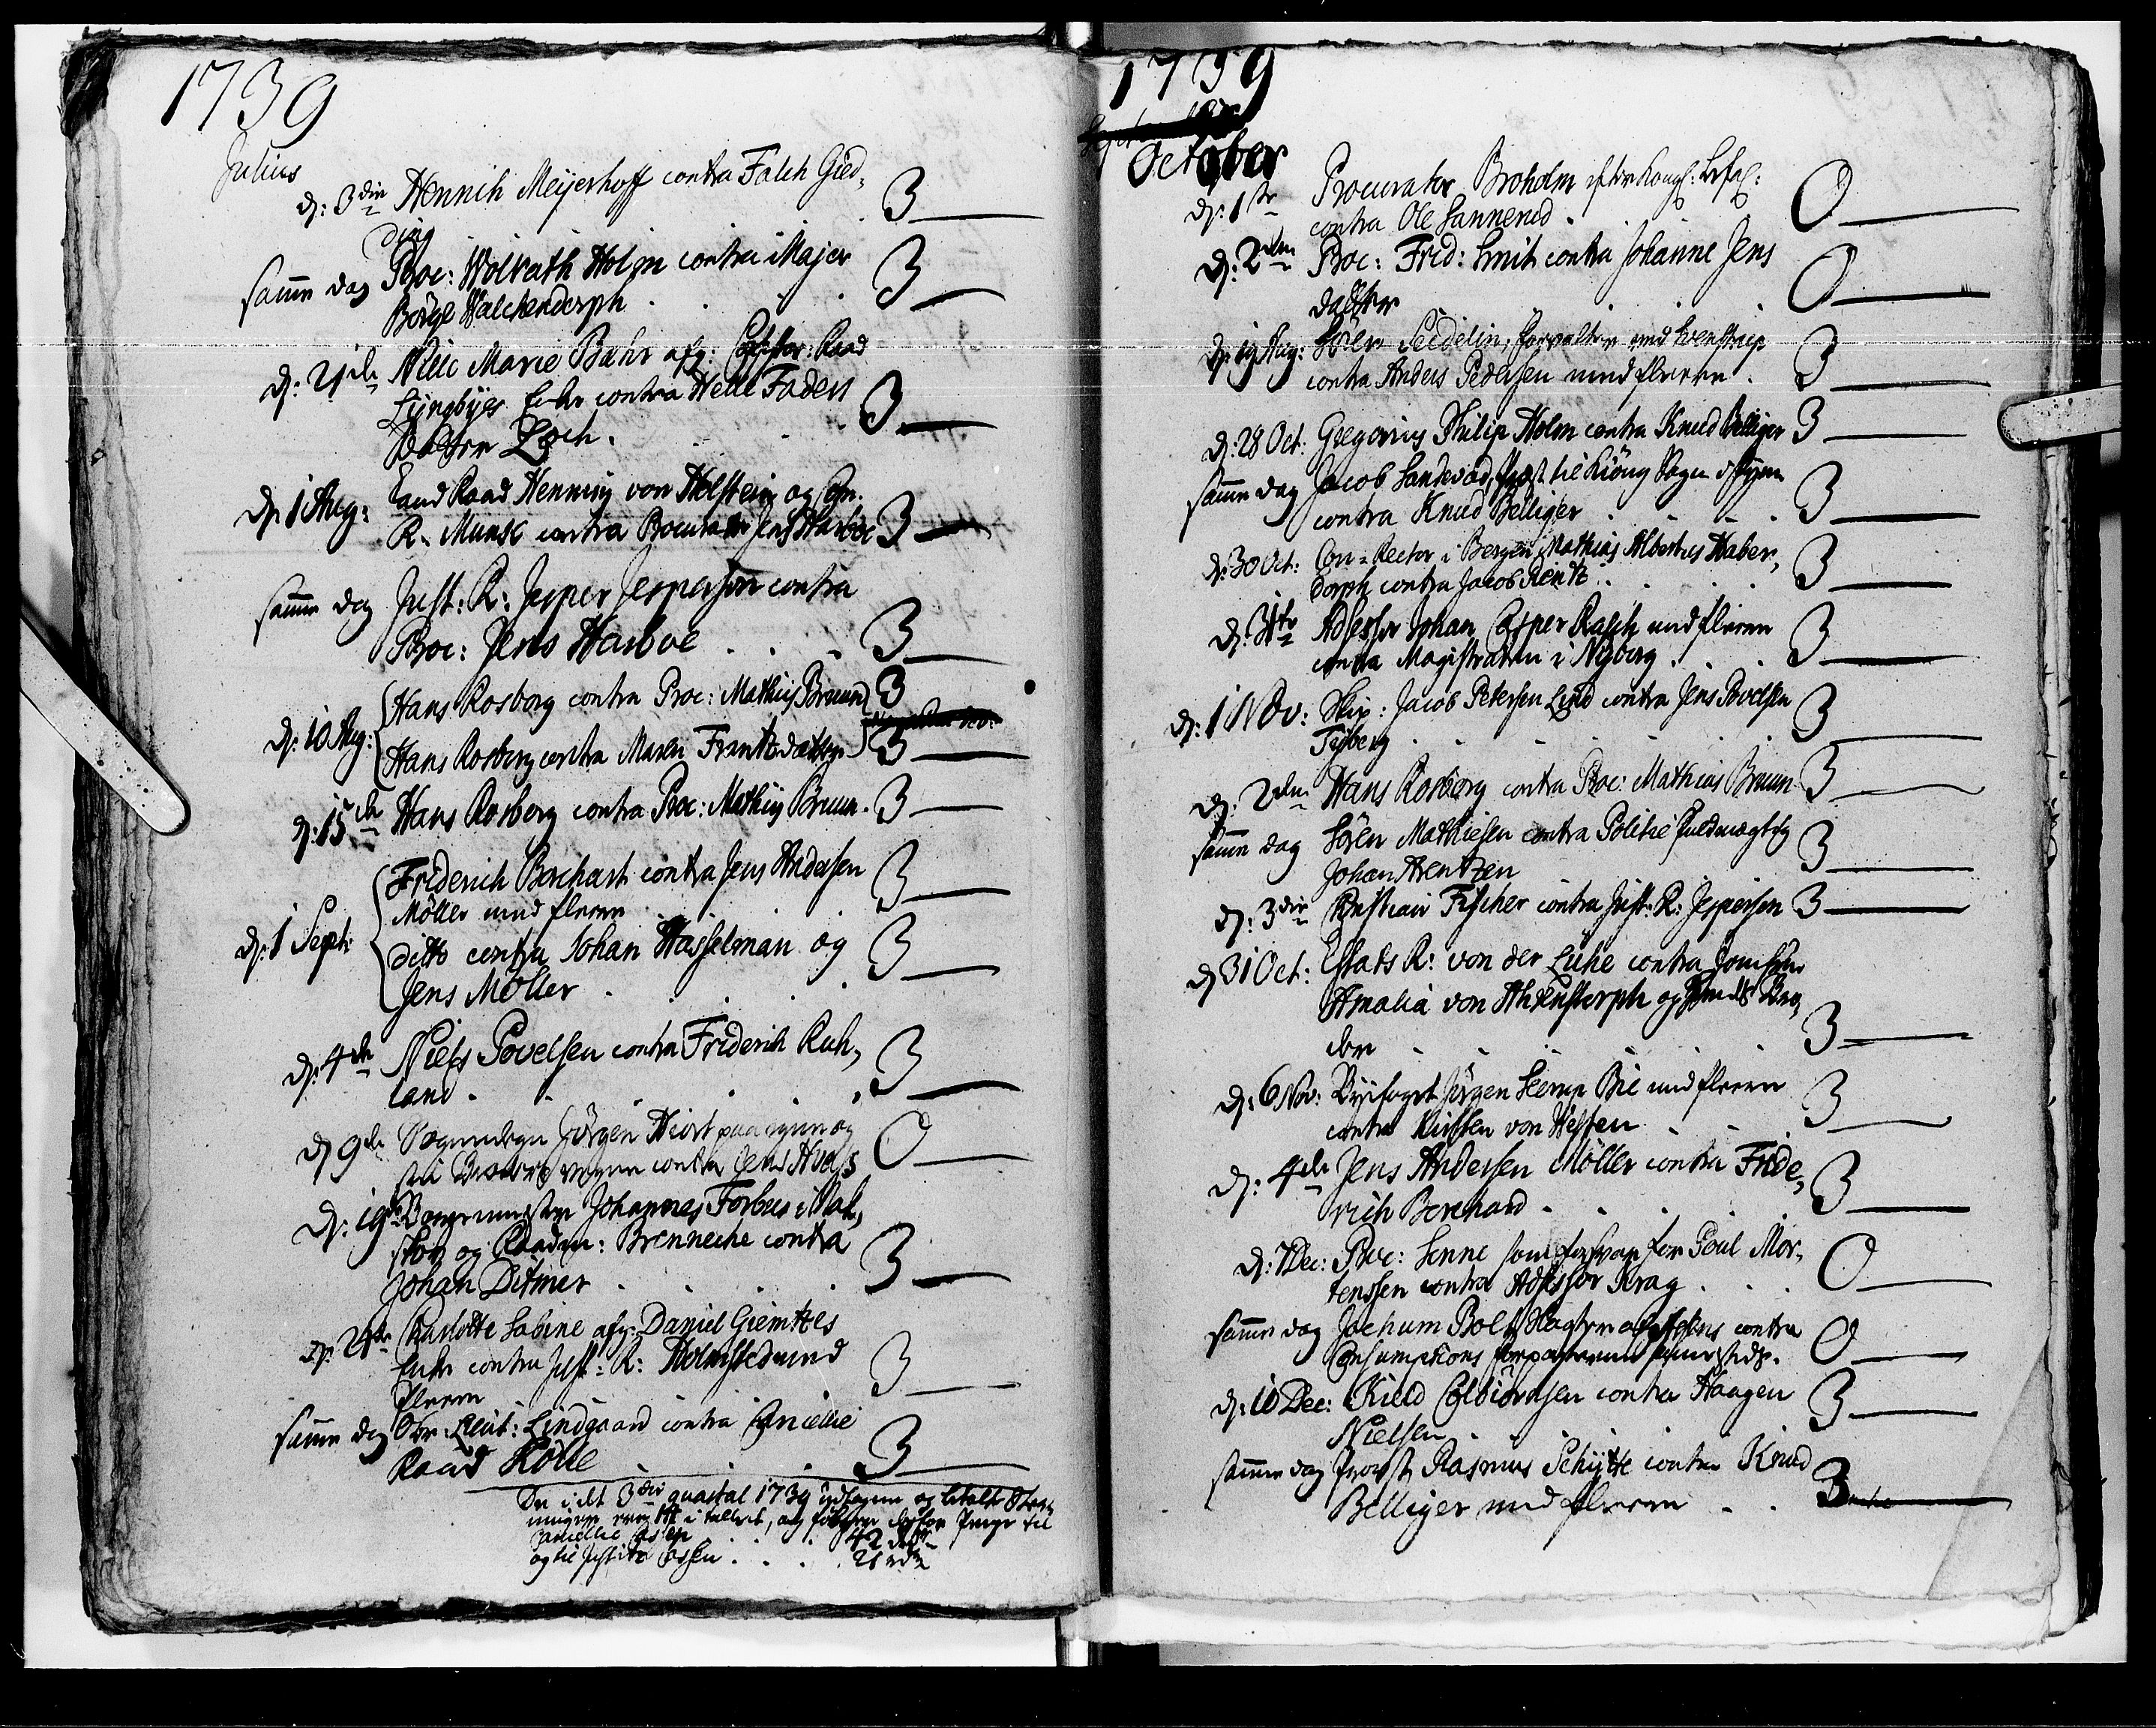 1739
Julius
d: 3die Hennich Meyerhoff contra Falch Gied,
ding 3
samme dag Proc: Wolrath Holm contra Major
Börge Walckendorph 3
d: 21de Marie Bæhr afg:
Lyngbyes Enke contra Faders
3
d: 1 Aug: Land Raad Henning von Holstein og
R. Munk contra Procurator Jens Harboe 3
samme dag Just: R: Jesper Jespersen contra
Proc: Jens Harboe 3
d: 10 Aug: Hans Rosborg contra Proc: Mathias Bruun 3
Hans Rosborg contra Maren Frantzdatter 3
d: 15de Hans Rosborg contra Proc: Mathias Bruun. 3
d: 1 Sept: Friderich Borchart contra Jens Andersen
Möller med fleere 3
ditto contra Johan Hasselman og
Jens Möller 3
d: 4de Niels Povelsen contra Friderich Ruh,
land 3
d 9de Jörgen Hiort paa egne og
contra Jens 0
d: 19de Borgermester Johannes Forbus i
og Raadm: Brenneche contra
Johan Ditmer 3
d: 24de Charlotte Sabine afg: Daniel Giemtzes
Enke contra Just: R: Holmsted med
fleere 3
samme dag Obr: Lieut: Lindgaard contra Cancellie
Raad Rölle 3
3die quartal 1739
Cancellie Cassen 42 rdr
og til Justitz Cassen 21 rdr
1739
October
d: 1ste Procurator Broholm efter Kongl: Befal:
contra Ole Sannerud 0
d: 2den Proc: Frid: Smit contra Johanne Jens
datter 0
d: 19 Aug: Sören Seidelin, forvalter ved
contra Anders Pedersen med fleere 3
d: 28 Oct: Gregorius Philip Holm contra Knud Belliger 3
samme dag Jacob Sandevad, Præst til Kiöng Sogn i Fyen
contra Knud Belliger 3
d: 30 Oct: Con-Rector i Bergen Mathias Albertus Haber,
dorph contra Jacob Rendtz 3
d: 31te Adsessor Johan Casper Rasch med fleere
contra Magistraten i Nyborg 3
d: 1 Nov: Skip: Jacob Petersen Lind contra Jens Povelsen
Fyberg 3
d: 2den Hans Rosborg contra Proc: Mathias Bruun 3
samme dag Sören Mathiesen contra Politie fuldmægtig
Johan Arentzen 3
d: 3die Christian Fischer contra Just: R: Jespersen 3
d 31 Oct: Etats R: von der Lühe contra Jomfru
Amalia von Ahrenstorph og Bro,
der 3
d: 6 Nov: Byefoget Jörgen Seerup Bie med fleere
contra Kirsten von Westen 3
d: 4de Jens Andersen Möller contra Fride,
rich Borchard 3
d: 7 Dec: Proc: Senne som forsvar for Poul Mor,
tenssen contra Adsessor Krag 0
samme dag Jochum Bolt Slagter contra
Consumptions Forpagterne sammesteds. 0
d: 10 Dec: Kield Colbiörnsen contra Haagen
Nielsen 3
samme dag Provst Rasmus Schytte contra Knud
Belliger med fleere 3